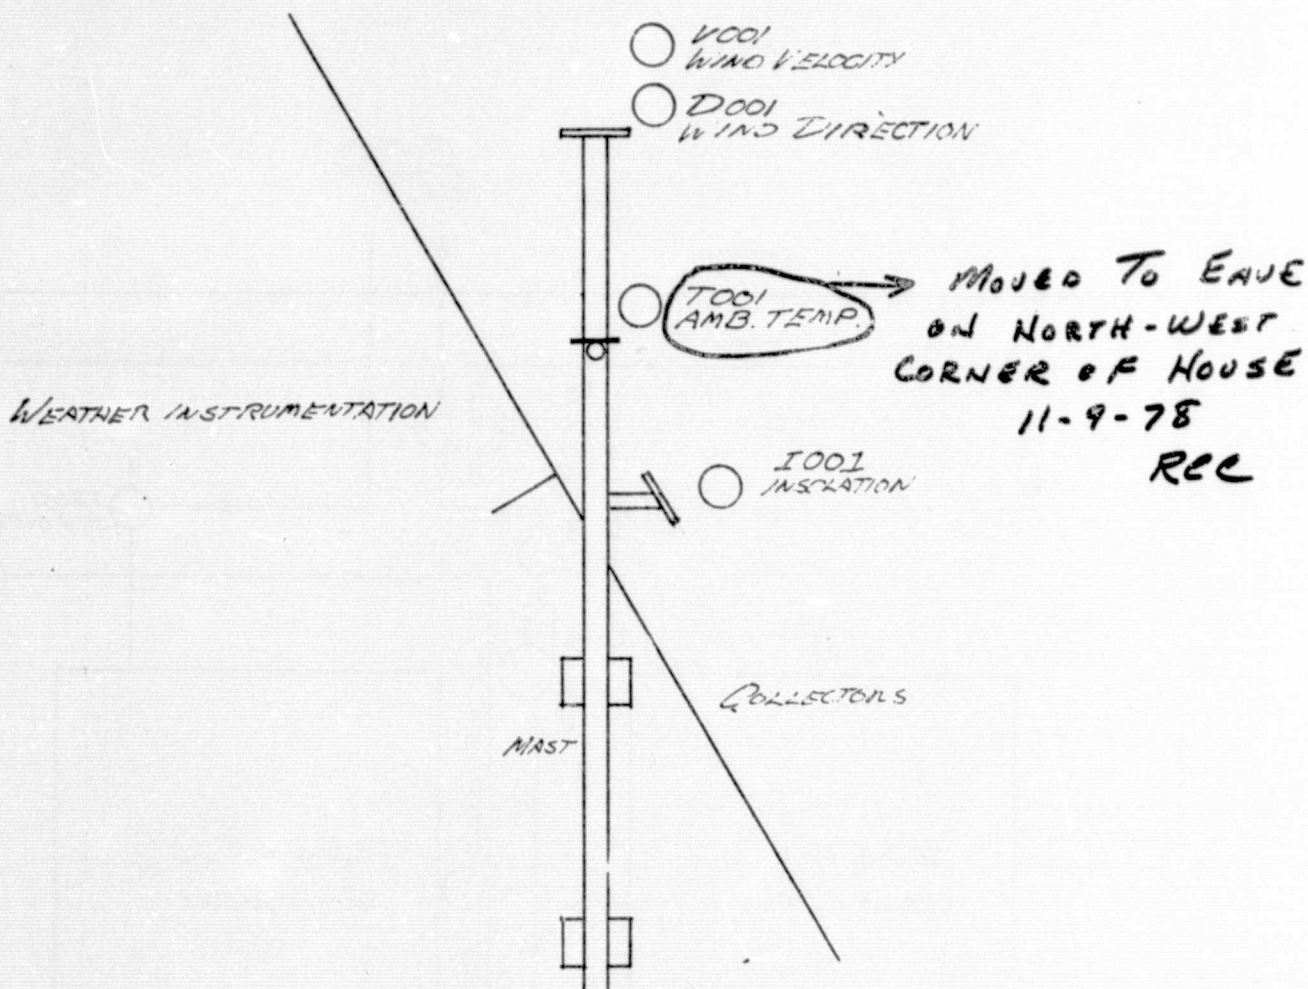 V001
WIND VELOCITY
D001
WIND DIRECTION
T001
AMB. TEMP.
MOVED TO EAVE
ON NORTH-WEST
CORNER OF HOUSE
11-9-78
RCC
WEATHER INSTRUMENTATION
I001
INSOLATION
COLLECTORS
MAST